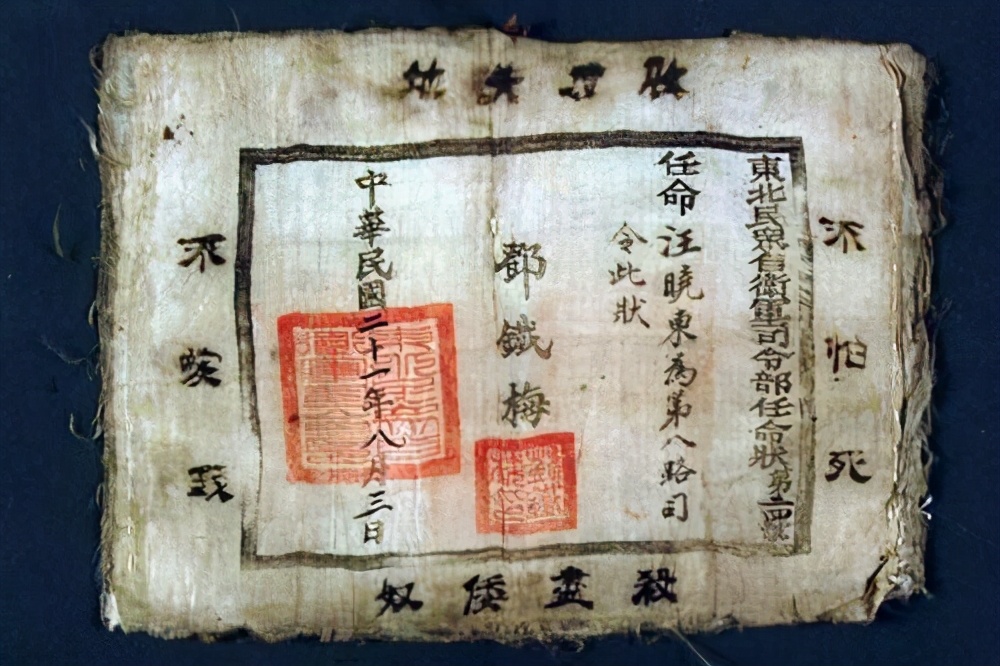 收失地
不怕死
東北民眾自衛軍司令部任命狀第四號
任命汪曉東為第八路司
令此狀
鄧鐵梅
中華民國二十一年八月三日
不
殺盡倭奴